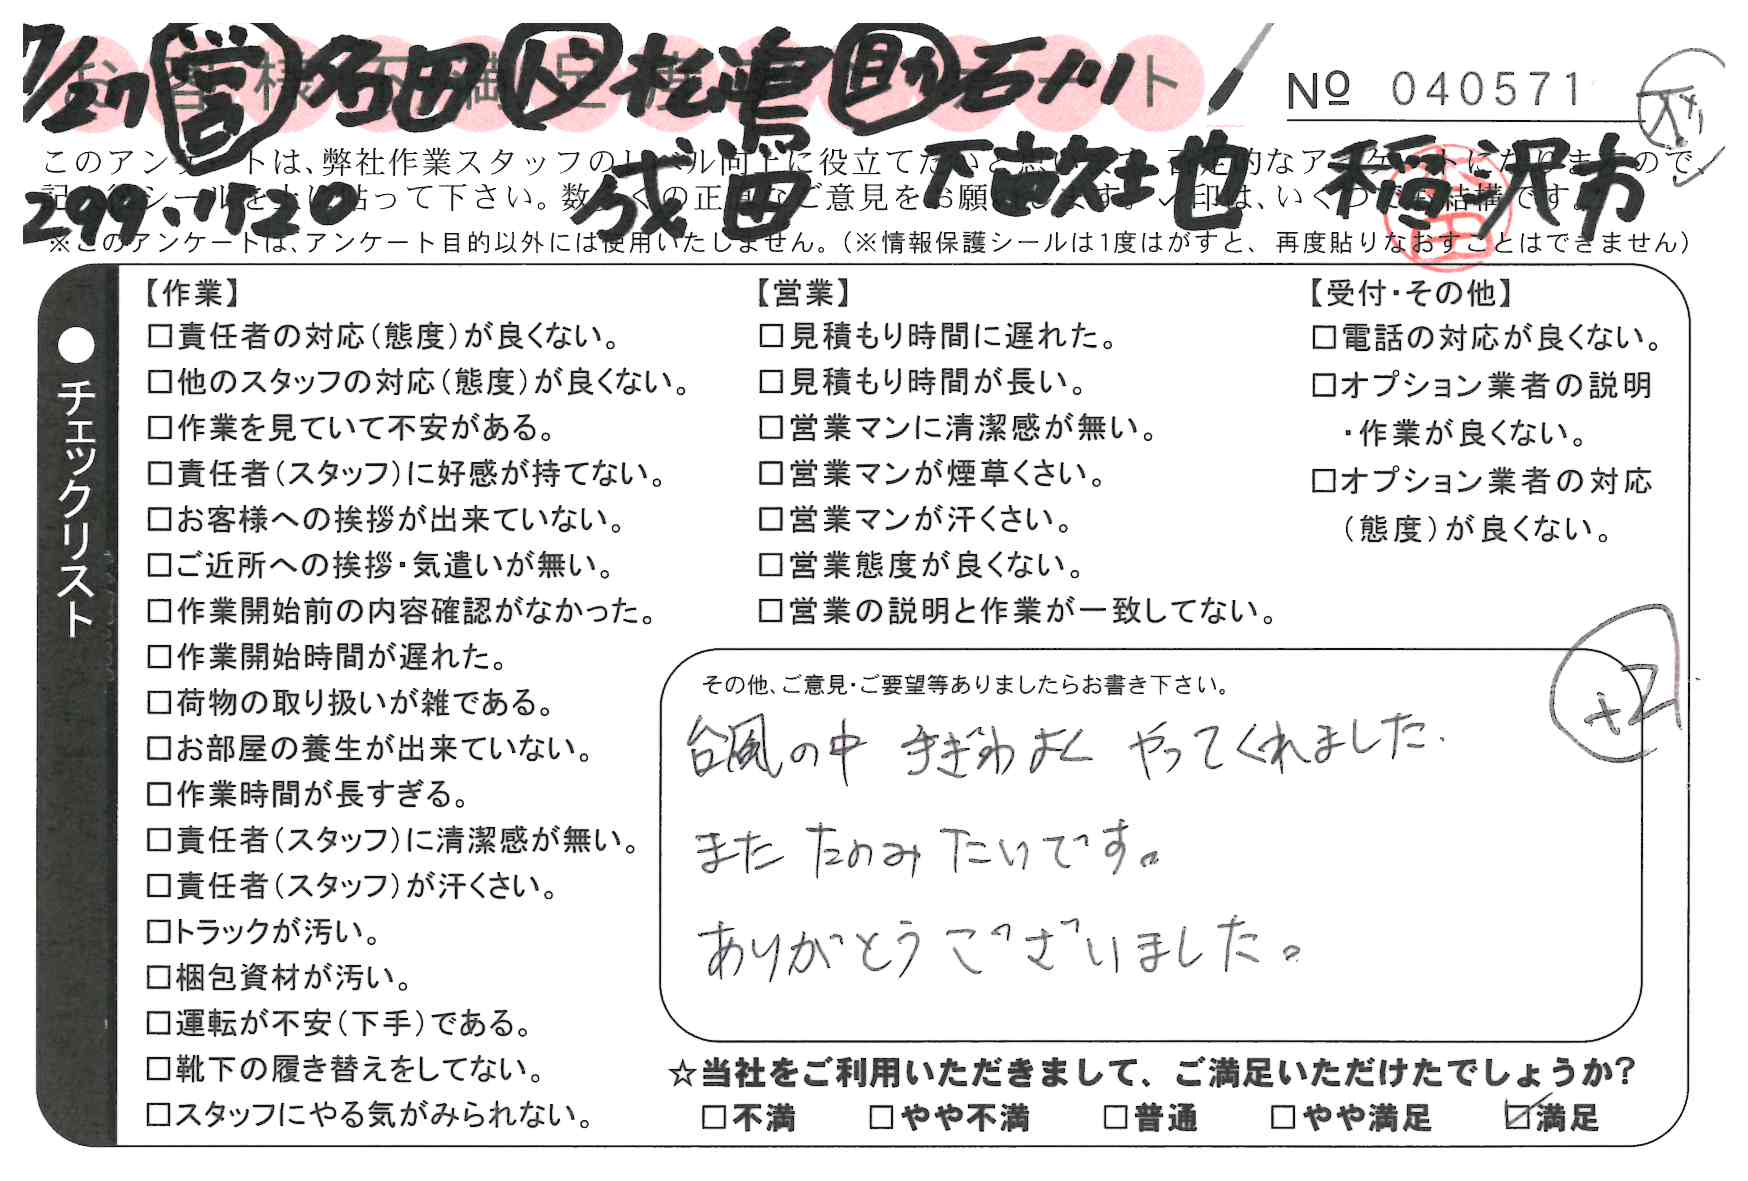 7/27 営 名田 ト 松嶋 助 石川
お客様不満足度アンケート
№ 040571
成田 下古久土也 稲沢市
299.1520
このアンケートは、弊社作業スタッフのレベル向上に役立てたいと思います。否定的なアンケートになりますので、
記入後シールを上に貼って下さい。数多くの正直なご意見をお願いします。✓印は、いくつでも結構です。
※このアンケートは、アンケート目的以外には使用いたしません。(※情報保護シールは1度はがすと、再度貼りなおすことはできません)
●チェックリスト
【作業】
□責任者の対応(態度)が良くない。
□他のスタッフの対応(態度)が良くない。
□作業を見ていて不安がある。
□責任者(スタッフ)に好感が持てない。
□お客様への挨拶が出来ていない。
□ご近所への挨拶・気遣いが無い。
□作業開始前の内容確認がなかった。
□作業開始時間が遅れた。
□荷物の取り扱いが雑である。
□お部屋の養生が出来ていない。
□作業時間が長すぎる。
□責任者(スタッフ)に清潔感が無い。
□責任者(スタッフ)が汗くさい。
□トラックが汚い。
□梱包資材が汚い。
□運転が不安(下手)である。
□靴下の履き替えをしてない。
□スタッフにやる気がみられない。
【営業】
□見積もり時間に遅れた。
□見積もり時間が長い。
□営業マンに清潔感が無い。
□営業マンが煙草くさい。
□営業マンが汗くさい。
□営業態度が良くない。
□営業の説明と作業が一致してない。
【受付・その他】
□電話の対応が良くない。
□オプション業者の説明
・作業が良くない。
□オプション業者の対応
(態度)が良くない。
+2
その他、ご意見・ご要望等ありましたらお書き下さい。
台風の中 きぎわよく やってくれました.
また たのみたいです。
ありがとうございました。
☆当社をご利用いただきまして、ご満足いただけたでしょうか?
□不満 □やや不満 □普通 □やや満足 ☑満足